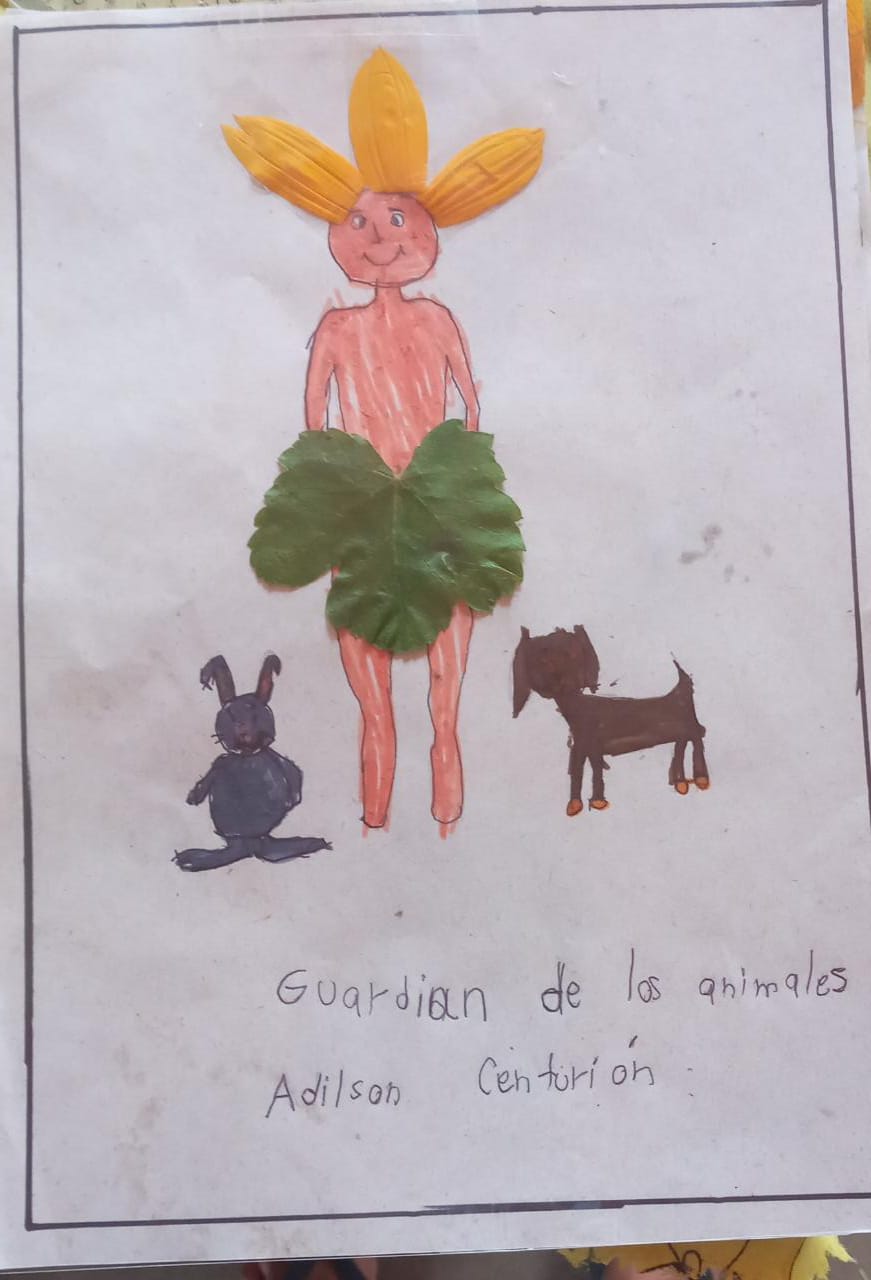 Guardian de los animales
Adilson Centurión